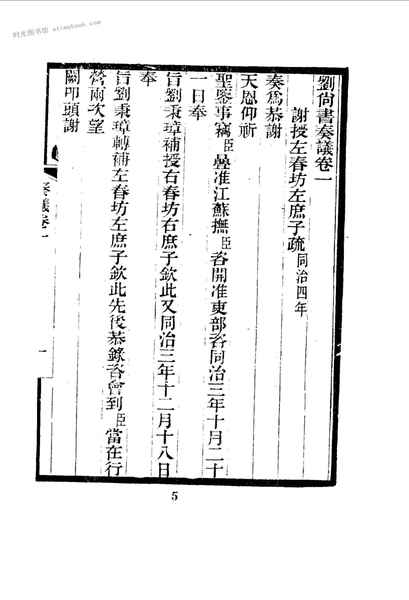 时光图书馆 - mtooubook.com
劉尚書奏議卷一
謝授左春坊左庶子疏同治四年
奏爲恭謝
天恩仰祈
聖鑒事竊臣疊准江蘇撫臣咨開准吏部咨同治三年十月二十
一日奉
旨劉秉璋補授右春坊右庶子欽此又同治三年十二月十八日
奉
旨劉秉璋轉補左春坊左庶子欽此先後恭錄咨會到臣當在行
營兩次望
闕叩頭謝
奏議卷一
一
5